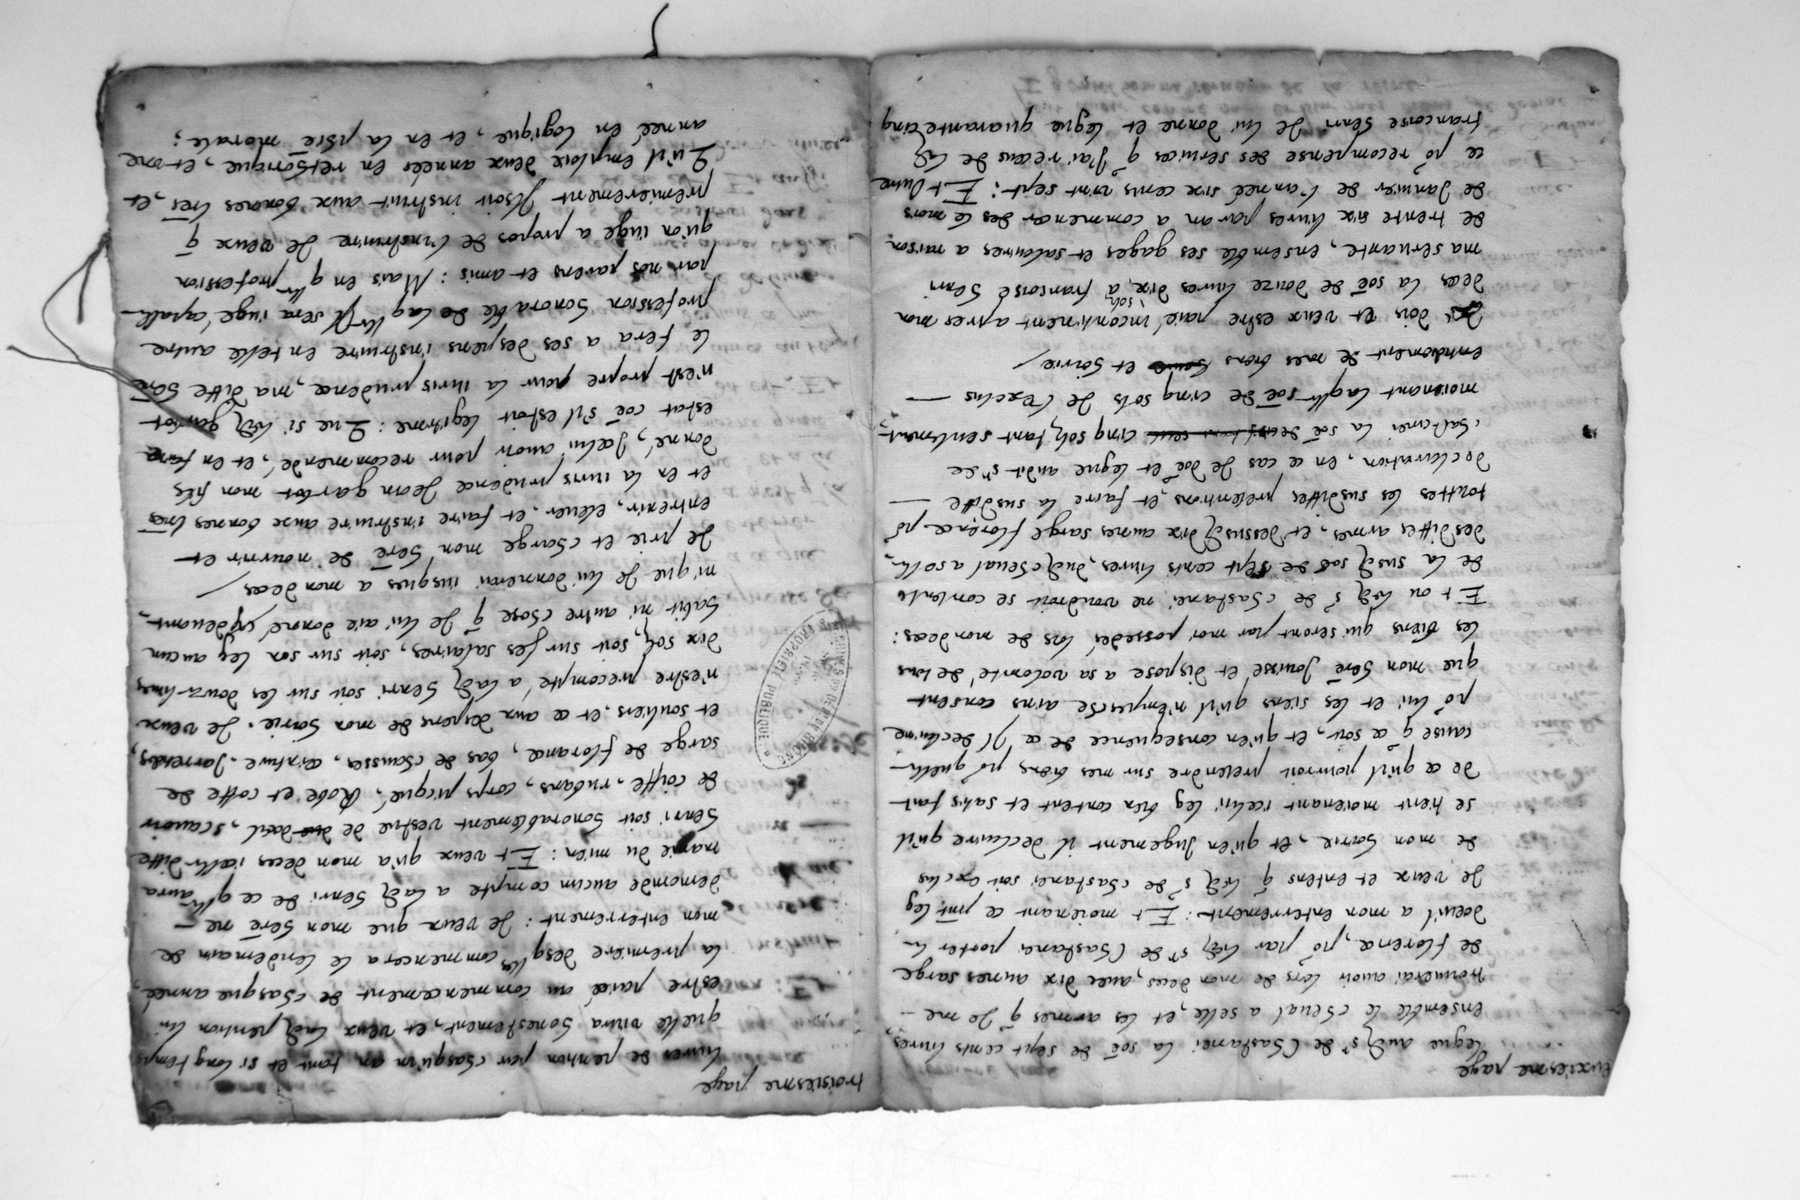 euxiesme page
legue aud sr de Chastanei la soē de sept cents livres
ensemble le cheual a selle, et les armes q̄ Je me
trouuerai auoir lors de mon deces, auec dix aunes sarge
de florence, pō par led sr de Chastanei porter le
doeuil a mon enterrement: Et moienant ce pnt leg
Je veux et entens q̄ led sr de chastanei soit exclus
de mon hoirie, et, qu'en Jugement il declaire qu'il
se tient moienant icelui leg bien content et satisfait
de ce qu'il pourroit pretendre sur mes biens pō quelle
cause q̄ ce soit, et, qu'en consequence de ce Jl declaire
pō lui et les siens qu'il n'empesche ains consent
que mon herē Jouisse et dispose a sa volomté de tous
les biens qui seront par moi possedés lors de mon deces:
Et ou led sr de chastanei ne voudroit se contente
de la susd soē de sept cents livres, dud cheual a selle,
desdittes armes, et, dessusd dix aunes sarge florence pō
touttes les susdittes pretentions, et faire la susditte
declairation, en ce cas Je doē et legue audit sr de
chastanei la soē cinq sols tant seulement,
moienant laqlle soē de cinq sols Je l'exclus
entierement de mes biens et hoirie/
Je dois et veux estre paié incontinent apres mon
deces la soē de douze livres dix sols a francoise henri
ma seruante, ensemble ses gages et salaires a raison
de trente six livres par an a commencer des le mois
de Januier de l'année six cents vint sept: Et outre
ce pō recompense des seruices q̄ J'ai receus de lad
francoise henri Je lui donne et legue quarantecinq
troisiesme page
livres de pention por chasqu'un an tant et si long temps
quelle viura honestement, et, veux lad pention lui
estre paieé au commencement de chasque année,
la premiere desqlles commencera le lendemain de
mon enterrement: Je veux que mon herē ne
demende aucun compte a lad henri de ce qlle aura
manié du mien: Et veux qu'a mon deces icelleditte
henri soit honorablement vestue de doeil, scauoir
de coiffe, rubans, corps picqué, Robe et cotte de
sarge de florance, bas de chausses, ceinture, Jarretieres,
et souliers, et, ce aux depens de mon hoirie. Je veux
n'estre precompté a lad henri soit sur les douze livres
dix sols, soit sur ses salaires, soit sur son leg aucun
habit ni autre chose q̄ Je lui aie donné cydeuant,
ni que Je lui donnerai iusques a mon deces/
Je prie et charge mon herē de nourrir et
entretenir, eleuer, et faire instruire aux bonnes lrēs
et en la iuris prudence Jean garbot mon fils
donné, Jcelui auoir pour recommendé, et, en faire
estat coē s'il estoit legitime: Que si led garbot
n'est propre pour la iurisprudence, ma ditte herē
le fera a ses despens instruire en telle autre
profession honorable de laqlle Jl sera iugé capable
par nos parens et amis: Mais en qlle profession
qu'on iuge a propos de l'instruire Je veux q̄
premierement Jl soit instruit aux bonnes lrēs, et,
Qu'il emploie deux années en rethorique, et, une
année en logique, et en la phie morale;
ARCHIVES DU DEP DU RHONE
PROPRIÉTÉ PUBLIQUE